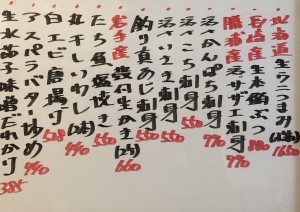 北海道産 生ウニつまみ(塩水) 1650
長崎産 生本鮪ぶつ 880
勝浦産 活サザエ刺身 770
活〆かんぱち刺身 770
活〆こち刺身 550
活〆いさき刺身 550
釣り真あじ刺身 550
岩手産 殻付生かき(2ヶ) 660
たち魚塩焼き 550
丸干しいわし(2本) 440
白エビ唐揚げ 528
アスパラバター炒め 440
生水茄子味噌だれかけ 385